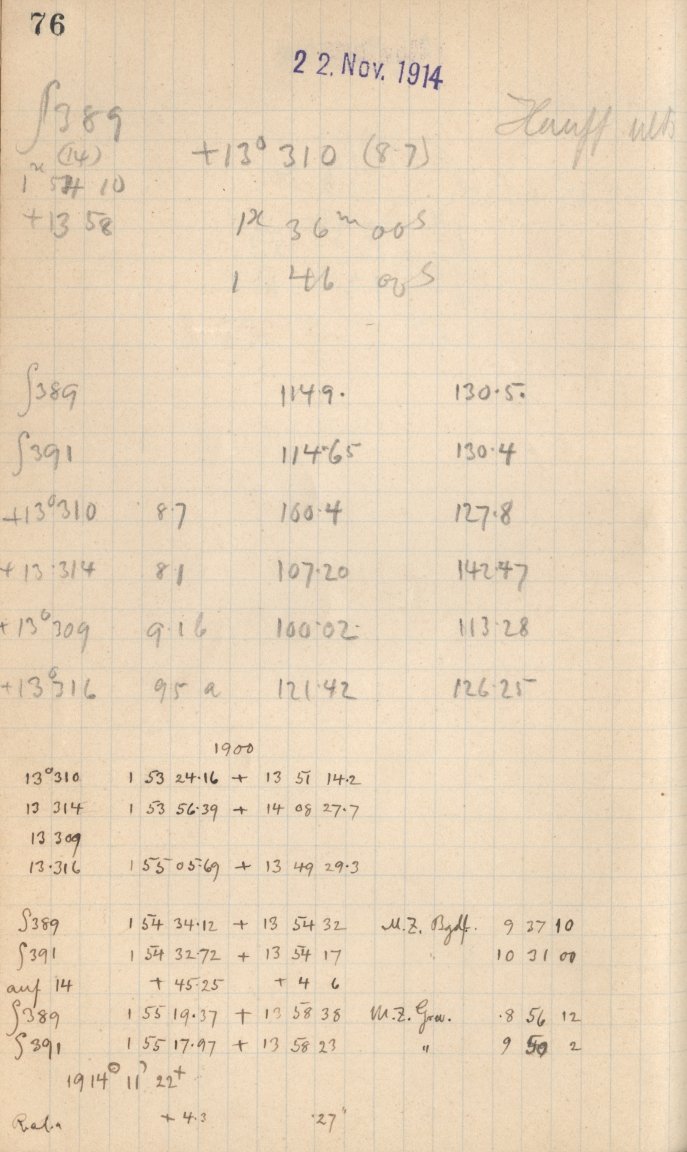 76
22. Nov. 1914
∫389
Hauff
(14)
+13° 310 (8.7)
1 54 10
+13 58
1h 36m 00s
1 46 00s
∫389 114.9. 130.5.
∫391 114.65 130.4
+13°310 8.7 100.4 127.8
+13.314 8.1 107.20 142.47
+13°309 9.16 100.02 113.28
+13°316 9.5 a 121.42 126.25
1900
13°310 1 53 24.16 + 13 51 14.2
13 314 1 53 56.39 + 14 08 27.7
13 309
13.316 1 55 05.69 + 13 49 29.3
∫389 1 54 34.12 + 13 54 32 M.Z. Bgdf. 9 37 10
∫391 1 54 32.72 + 13 54 17 " 10 31 00
auf 14 + 45.25 + 4 6
∫389 1 55 19.37 + 13 58 38 M.Z. Grw. 8 56 12
∫391 1 55 17.97 + 13 58 23 " 9 50 2
1914 11 22
+ 4.3 27"